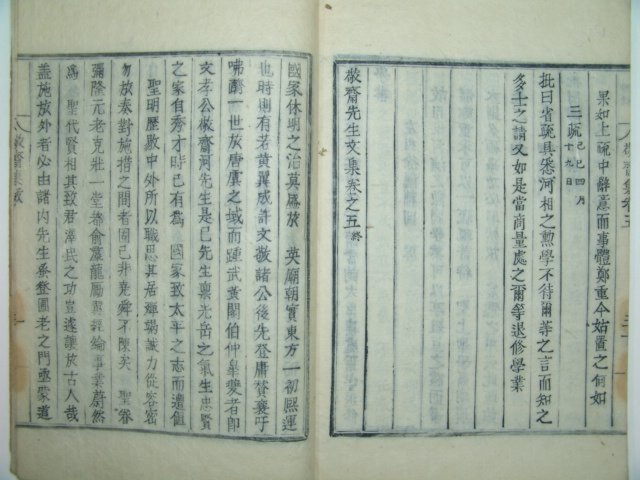 果如上疏中辭意而事體鄭重今姑置之何如
三疏己巳四月十九日
批曰省疏具悉河相之勲學不待爾等之言而知之
多士之請又如是當商量處之爾等退修學業
敬齋先生文集卷之五終
國家休明之治莫盛於 英廟朝實東方一初熙運
也時則有若黃翼成許文敬諸公後先登庸賛襄吁
咈躋一世於唐虞之域而踵武黃閣伯仲皐夔者即
文孝公敬齋河先生是已先生禀光岳之氣生忠賢
之家自秀才時已有爲 國家致太平之志而遭値
聖明歷敭中外所以職思其居輝竭誠力從容密
勿於奏對施措之間者固已非堯舜不陳矣 聖眷
彌隆元老克壯一堂都俞羣龍勵翼經綸事業蔚然
爲 聖代賢相其致君澤民之功豈遽讓於古人哉
盖施於外者必由諸内先生蚤登圃老之門亟蒙道
敬齋集跋